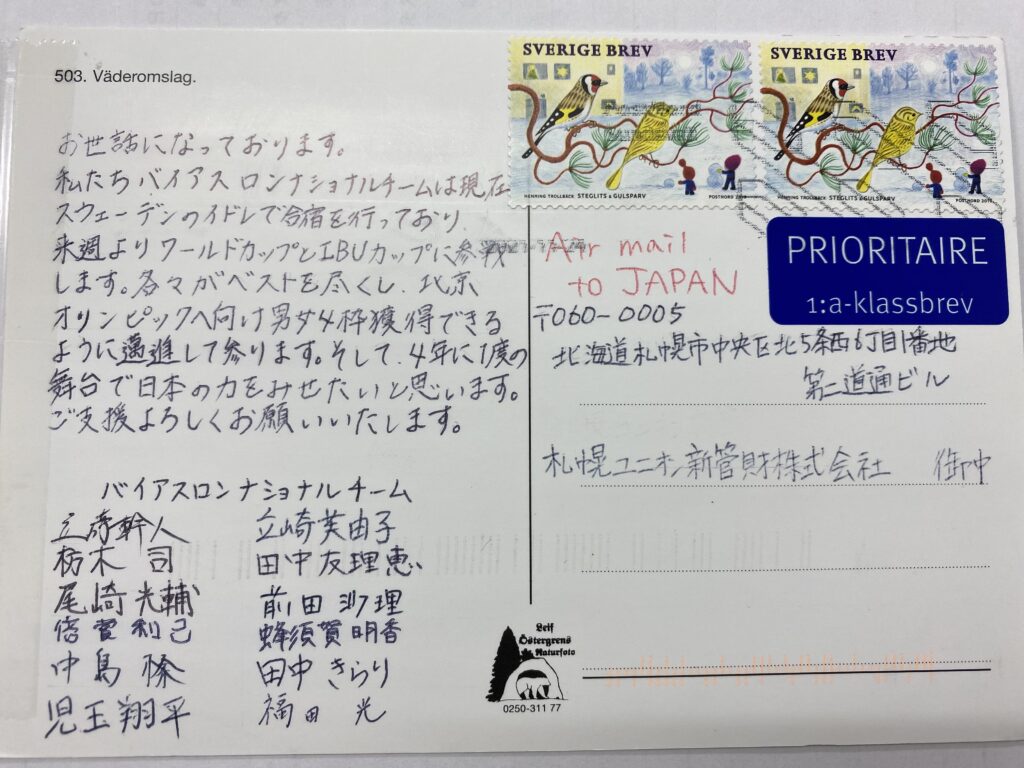 503. Väderomslag.
お世話になっております。
私たちバイアスロンナショナルチームは現在
スウェーデンのイドレで合宿を行っており、
来週よりワールドカップとIBUカップに参戦
します。各々がベストを尽くし、北京
オリンピックへ向け男女4枠獲得できる
ように邁進して参ります。そして、4年に1度の
舞台で日本の力をみせたいと思います。
ご支援よろしくお願いいたします。
バイアスロンナショナルチーム
立崎幹人
枋木 司
尾崎光輔
倍賀和己
中島
児玉翔平
立崎芙由子
田中友理恵
前田沙理
蜂須賀明香
田中きらり
福田 光
SVERIGE BREV
HENNING TROLLBÄCK STEGLITS & GULSPARV
POSTNORD
SVERIGE BREV
HENNING TROLLBÄCK STEGLITS & GULSPARV
POSTNORD
Air mail
to JAPAN
PRIORITAIRE
1:a-klassbrev
〒060-0005
北海道札幌市中央区北5条西6丁目1番地
第二道通ビル
札幌ユニオン新管財株式会社 御中
Leif
Östergrens
Naturfoto
0250-311 77